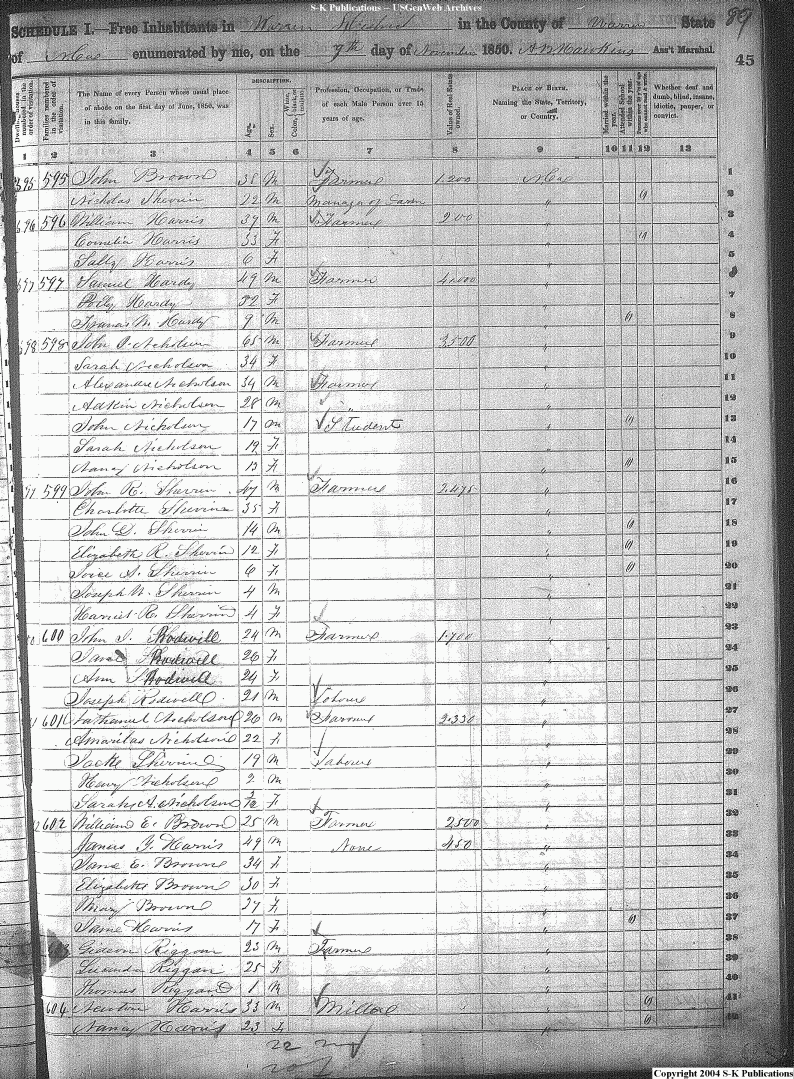 S-K Publications -- USGenWeb Archives
89
SCHEDULE I.—Free Inhabitants in Warren District in the County of Warren State
of enumerated by me, on the 7th day of November 1850. Ass't Marshal.
45
DESCRIPTION.
Dwelling-houses numbered in the order of visitation.
Families numbered in the order of visitation.
The Name of every Person whose usual place of abode on the first day of June, 1850, was in this family.
Age.
Sex.
Color,
Profession, Occupation, or Trade of each Male Person over 15 years of age.
Value of Real Estate owned.
PLACE OF BIRTH. Naming the State, Territory, or Country.
Married within the year.
Attended School within the year.
Persons over 20 y'rs of age who cannot read & write.
Whether deaf and dumb, blind, insane, idiotic, pauper, or convict.
1 2 3 4 5 6 7 8 9 10 11 12 13
595 595 John Brown 38 M Farmer 1200 1
Nicholas Sherrin 22 M Manager of Farm " 2
596 596 William Harris 37 M Farmer 200 " 3
Cornelia Harris 33 F " 4
Sally Harris 6 F " 5
597 597 Samuel Hardy 49 M Farmer "
Polly Hardy 32 F " 7
Francis M. Hardy 9 M " 8
598 598 John Nicholson 65 M Farmer 3500 " 9
Sarah Nicholson 34 F " 10
Alexander Nicholson 34 M Farmer " 11
Adkin Nicholson 28 M " " 12
John Nicholson 17 M Student " 13
Sarah Nicholson 19 F " 14
Nancy Nicholson 13 F " 15
599 John R. Sherrin M Farmer 2.475 " 16
Charlotte Sherrin 35 F " 17
John D. Sherrin 14 M " 18
Elizabeth R. Sherrin 12 F " 19
Joice A. Sherrin 6 F " 20
Joseph W. Sherrin 4 M " 21
Harriet R. Sherrin 4 F " 22
600 John J. Rodwell 24 M Farmer 1.700 " 23
Rodwell 26 F " 24
Ann Rodwell 24 F " 25
Joseph Rodwell 21 M Laborer " 26
601 Nathaniel Nicholson 26 M Farmer 2.330 " 27
Nicholson 22 F " 28
Sherrin 19 M Laborer " 29
Henry Nicholson 2 M " 30
Sarah A. Nicholson F " 31
602 William E. Brown 25 M Farmer 2500 " 32
James Y. Harris 49 M None 450 " 33
Jane E. Brown 34 F " 34
Elizabeth Brown 30 F " 35
Mary Brown 27 F " 36
Jane Harris 17 F " 37
Gideon Riggan 23 M Farmer " 38
Lucinda Riggan 25 F " 39
Thomas Riggan 1 M " 40
604 Newton Harris 33 M Miller " 41
Nancy Harris 23 F "
22 M
20 f
Copyright 2004 S-K Publications